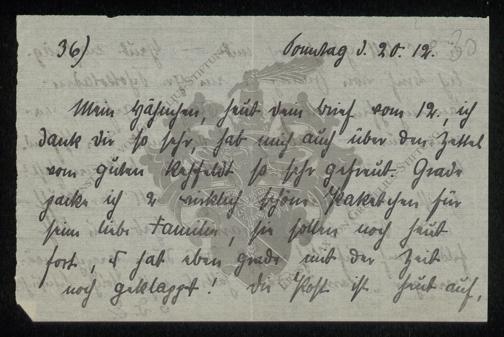 36) Sonntag d. 20. 12.
Mein Hähnchen, heut dem Brief vom 12., ich
dank dir so sehr, hab mich auch über den Zettel
vom guten so sehr gefreut. Grade
packe ich 2 wirklich schöne Paketchen für
seine liebe Familie, sie sollen noch heut
fort, es hat eben grade mit der Zeit
noch geklappt! Die Post ist heut auf,